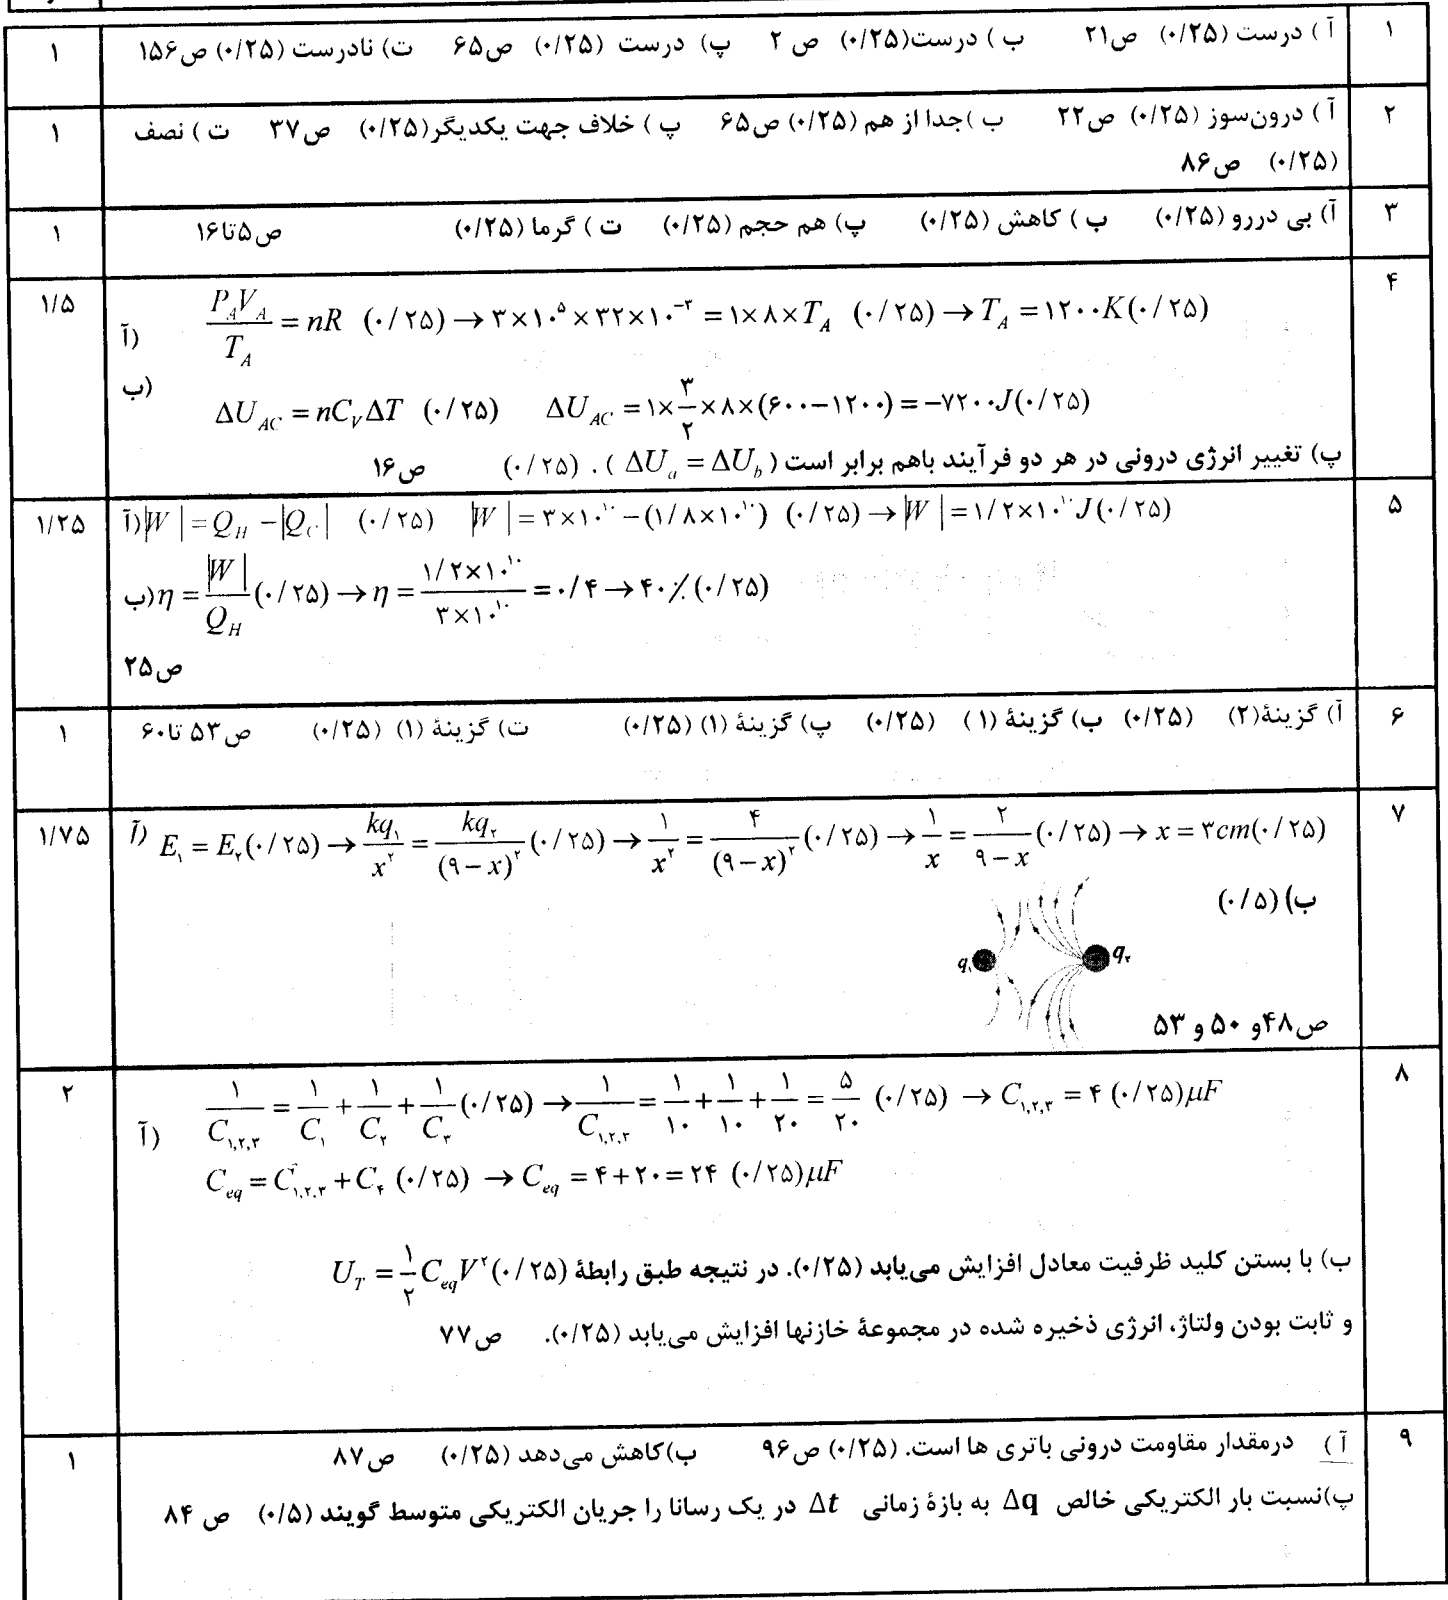 ۱ آ ) درست (۰/۲۵) ص۲۱ ب ) درست(۰/۲۵) ص ۲ پ) درست (۰/۲۵) ص۶۵ ت) نادرست (۰/۲۵) ص۱۵۶ ۱
۲ آ ) درون‌سوز (۰/۲۵) ص۲۲ ب )جدا از هم (۰/۲۵) ص۶۵ پ ) خلاف جهت یکدیگر(۰/۲۵) ص۳۷ ت ) نصف ۱
(۰/۲۵) ص۸۶
۳ آ) بی دررو (۰/۲۵) ب ) کاهش (۰/۲۵) پ) هم حجم (۰/۲۵) ت ) گرما (۰/۲۵) ص۵تا۱۶ ۱
۴ آ) P_A V_A / T_A = nR (۰/۲۵) → ۳×۱۰^۵×۳۲×۱۰^-۳ = ۱×۸×T_A (۰/۲۵) → T_A = ۱۲۰۰K(۰/۲۵) ۱/۵
ب) ΔU_AC = nC_VΔT (۰/۲۵) ΔU_AC = ۱×۳/۲×۸×(۶۰۰−۱۲۰۰) = −۷۲۰۰J(۰/۲۵)
پ) تغییر انرژی درونی در هر دو فرآیند باهم برابر است ( ΔU_a = ΔU_b ) . (۰/۲۵) ص۱۶
۵ آ) |W| = Q_H −|Q_C| (۰/۲۵) |W| = ۳×۱۰^۱۰ −(۱/۸×۱۰^۱۰) (۰/۲۵) → |W| = ۱/۲×۱۰^۱۰ J(۰/۲۵) ۱/۲۵
ب) η = |W| / Q_H (۰/۲۵) → η = ۱/۲×۱۰^۱۰ / ۳×۱۰^۱۰ = ۰/۴ → ۴۰٪(۰/۲۵)
ص۲۵
۶ آ) گزینۀ(۲) (۰/۲۵) ب) گزینۀ (۱ ) (۰/۲۵) پ) گزینۀ (۱) (۰/۲۵) ت) گزینۀ (۱) (۰/۲۵) ص۵۳ تا۶۰ ۱
۷ آ) E_۱ = E_۲(۰/۲۵) → kq_۱ / x^۲ = kq_۲ / (۹−x)^۲ (۰/۲۵) → ۱ / x^۲ = ۴ / (۹−x)^۲ (۰/۲۵) → ۱ / x = ۲ / ۹−x (۰/۲۵) → x = ۳cm(۰/۲۵) ۱/۷۵
ب) (۰/۵)
q_۱ q_۲
ص۴۸و ۵۰ و ۵۳
۸ آ) ۱/C_۱,۲,۳ = ۱/C_۱ + ۱/C_۲ + ۱/C_۳ (۰/۲۵) → ۱/C_۱,۲,۳ = ۱/۱۰ + ۱/۱۰ + ۱/۲۰ = ۵/۲۰ (۰/۲۵) → C_۱,۲,۳ = ۴ (۰/۲۵)μF ۲
C_eq = C_۱,۲,۳ + C_۴ (۰/۲۵) → C_eq = ۴+۲۰=۲۴ (۰/۲۵)μF
ب) با بستن کلید ظرفیت معادل افزایش می‌یابد (۰/۲۵). در نتیجه طبق رابطۀ U_T = ۱/۲ C_eq V^۲ (۰/۲۵)
و ثابت بودن ولتاژ، انرژی ذخیره شده در مجموعۀ خازنها افزایش می‌یابد (۰/۲۵). ص۷۷
۹ آ ) درمقدار مقاومت درونی باتری ها است. (۰/۲۵) ص۹۶ ب)کاهش می‌دهد (۰/۲۵) ص۸۷ ۱
پ)نسبت بار الکتریکی خالص Δq به بازۀ زمانی Δt در یک رسانا را جریان الکتریکی متوسط گویند (۰/۵) ص ۸۴